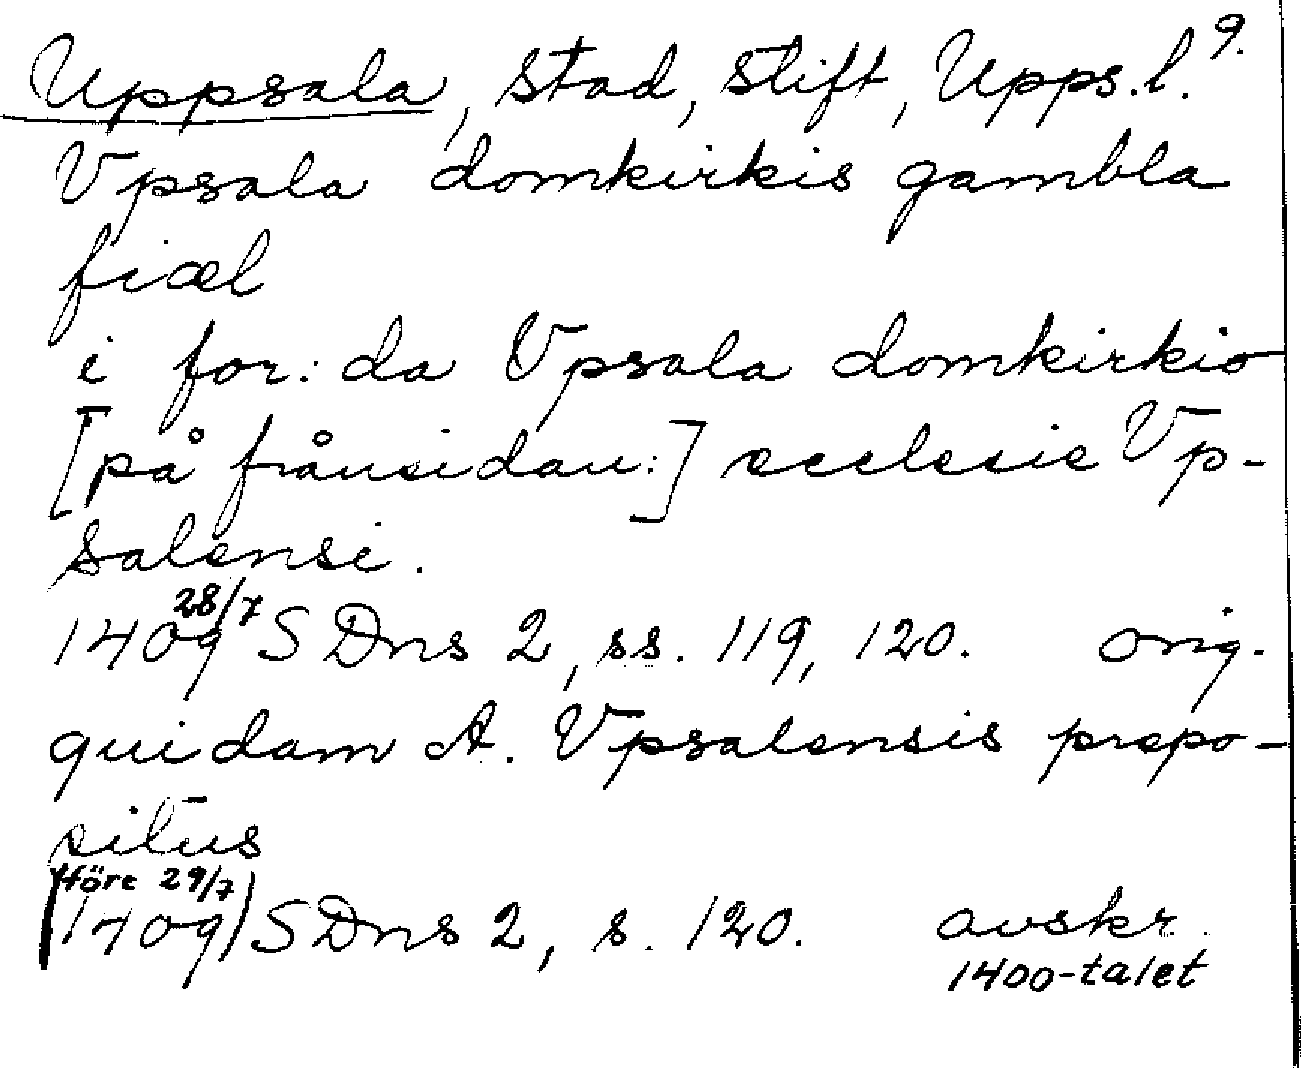 Uppsala, stad, stift, Upps.l. 9.
Vpsala domkirkis gambla
fiæl
i for: da Vpsala domkirkio
[på frånsidan:] ecclesie Vp-
salensi.
1409 28/7 SDns 2, ss. 119, 120. orig.
quidam A. Vpsalensis prepo-
situs
(före 29/7
1409) SDns 2, s. 120. avskr.
1400-talet